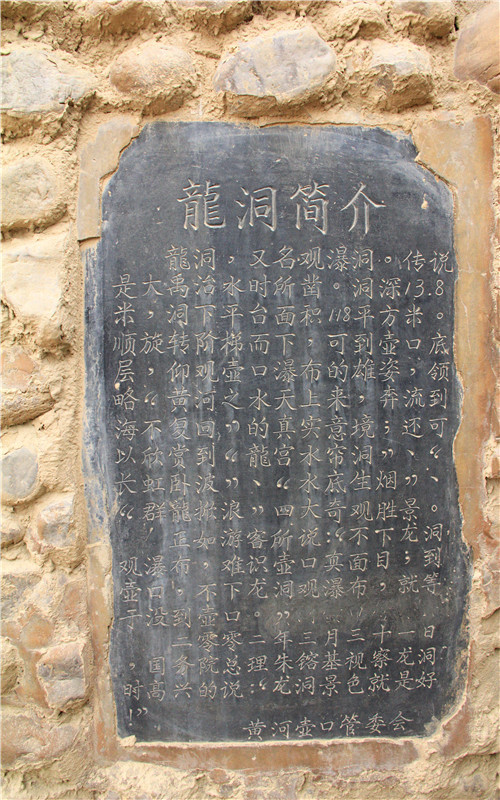 龍洞简介
龍洞,又名观瀑洞。传说
是大禹治水时所凿。洞深13.8
米,洞下平台面积118平方米。
顺旋转阶梯而下,可到壶口底
层,仰观壶口瀑布的雄姿,领
略“黄河之水天上来,奔流到
海不复回”的真实意境;还可
以欣赏到“龍宫水帘洞”、
“长虹卧波”、“水底生烟”、
“群龍掀浪”四大奇观胜景。
正如游客所说:“不下龙洞
观瀑布,难识壶口真面目;到
壶口不下龙洞观瀑布,就等
于没到壶口。”
二零零二年三月三十一日
,国务院总理朱镕基视察龙洞
时高兴的说:“龙洞景色就是好
!”
黄河壶口管委会